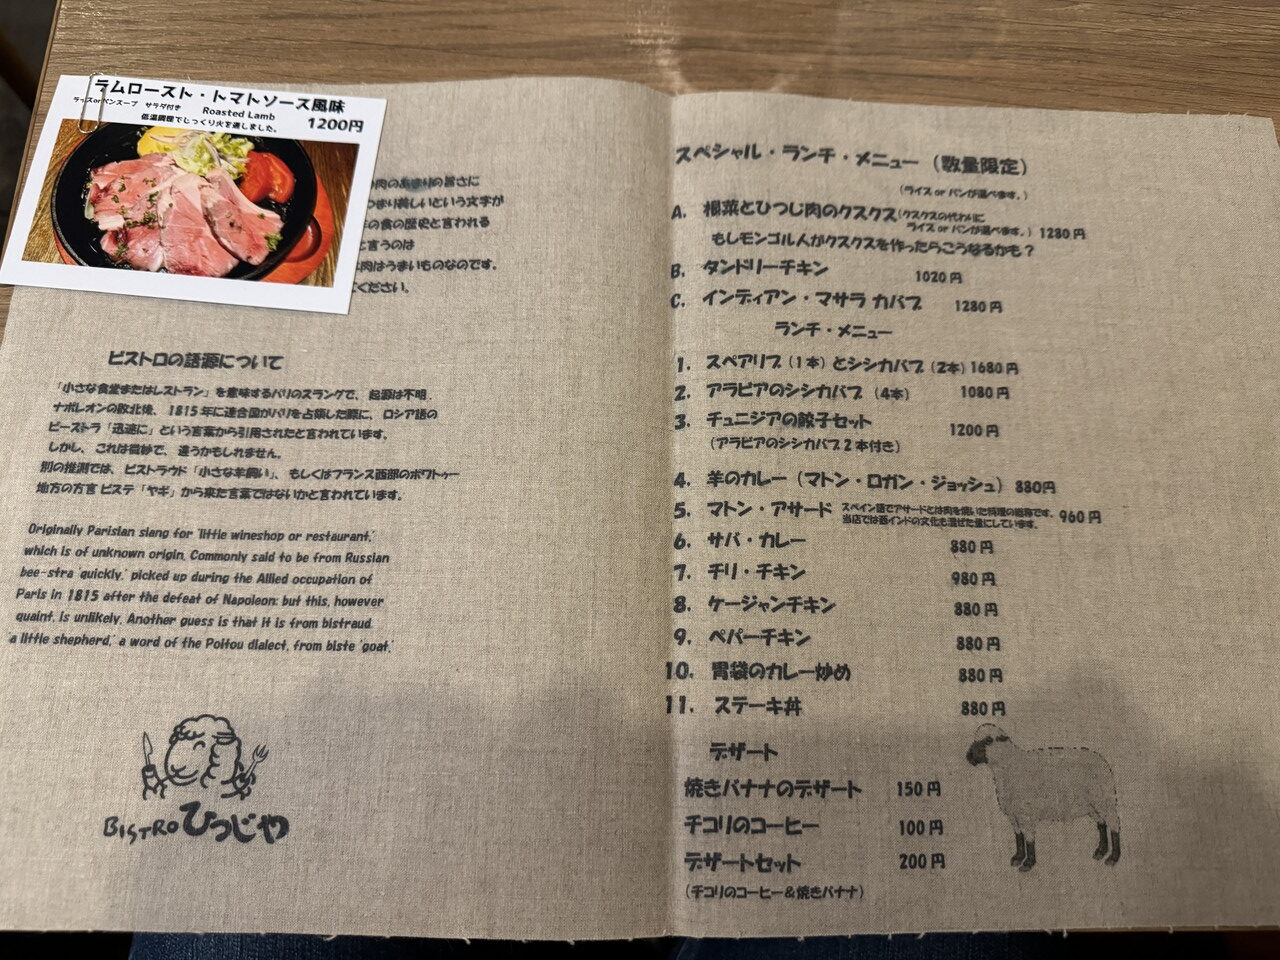 ラムロースト・トマトソース風味
ライスorパンスープ サラダ付き Roasted Lamb
低温調理でじっくり火を通しました。 1200円
肉のあまりの旨さに
つまり美しいという文字が
の食の歴史と言われる
と言うのは
肉はうまいものなのです。
ください。
ビストロの語源について
「小さな食堂またはレストラン」を意味するパリのスラングで、起源は不明。
ナポレオンの敗北後、1815年に連合国がパリを占領した際に、ロシア語の
ビーストラ「迅速に」という言葉から引用されたと言われています。
しかし、これは微妙で、違うかもしれません。
別の推測では、ビストラウド「小さな羊飼い」、もしくはフランス西部のポワトゥー
地方の方言 ビステ「ヤギ」から来た言葉ではないかと言われています。
Originally Parisian slang for 'little wineshop or restaurant,'
which is of unknown origin. Commonly said to be from Russian
bee-stra 'quickly,' picked up during the Allied occupation of
Paris in 1815 after the defeat of Napoleon; but this, however
quaint, is unlikely. Another guess is that it is from bistraud
'a little shepherd,' a word of the Poitou dialect, from biste 'goat.'
BISTRO ひつじや
スペシャル・ランチ・メニュー（数量限定）
（ライス or パンが選べます。）
A. 根菜とひつじ肉のクスクス（クスクスの代わりに
ライス or パンが選べます。） 1280円
もしモンゴル人がクスクスを作ったらこうなるかも？
B. タンドリーチキン 1020円
C. インディアン・マサラ カバブ 1280円
ランチ・メニュー
1. スペアリブ（1本）とシシカバブ（2本） 1680円
2. アラビアのシシカバブ（4本） 1080円
3. チュニジアの餃子セット 1200円
（アラビアのシシカバブ2本付き）
4. 羊のカレー（マトン・ロガン・ジョッシュ） 880円
5. マトン・アサード スペイン語でアサードとは肉を焼いた料理の総称です。
当店では西インドの文化も混ぜた量にしています。 960円
6. サバ・カレー 880円
7. チリ・チキン 980円
8. ケージャンチキン 880円
9. ペパーチキン 880円
10. 胃袋のカレー炒め 880円
11. ステーキ丼 880円
デザート
焼きバナナのデザート 150円
チコリのコーヒー 100円
デザートセット 200円
（チコリのコーヒー＆焼きバナナ）